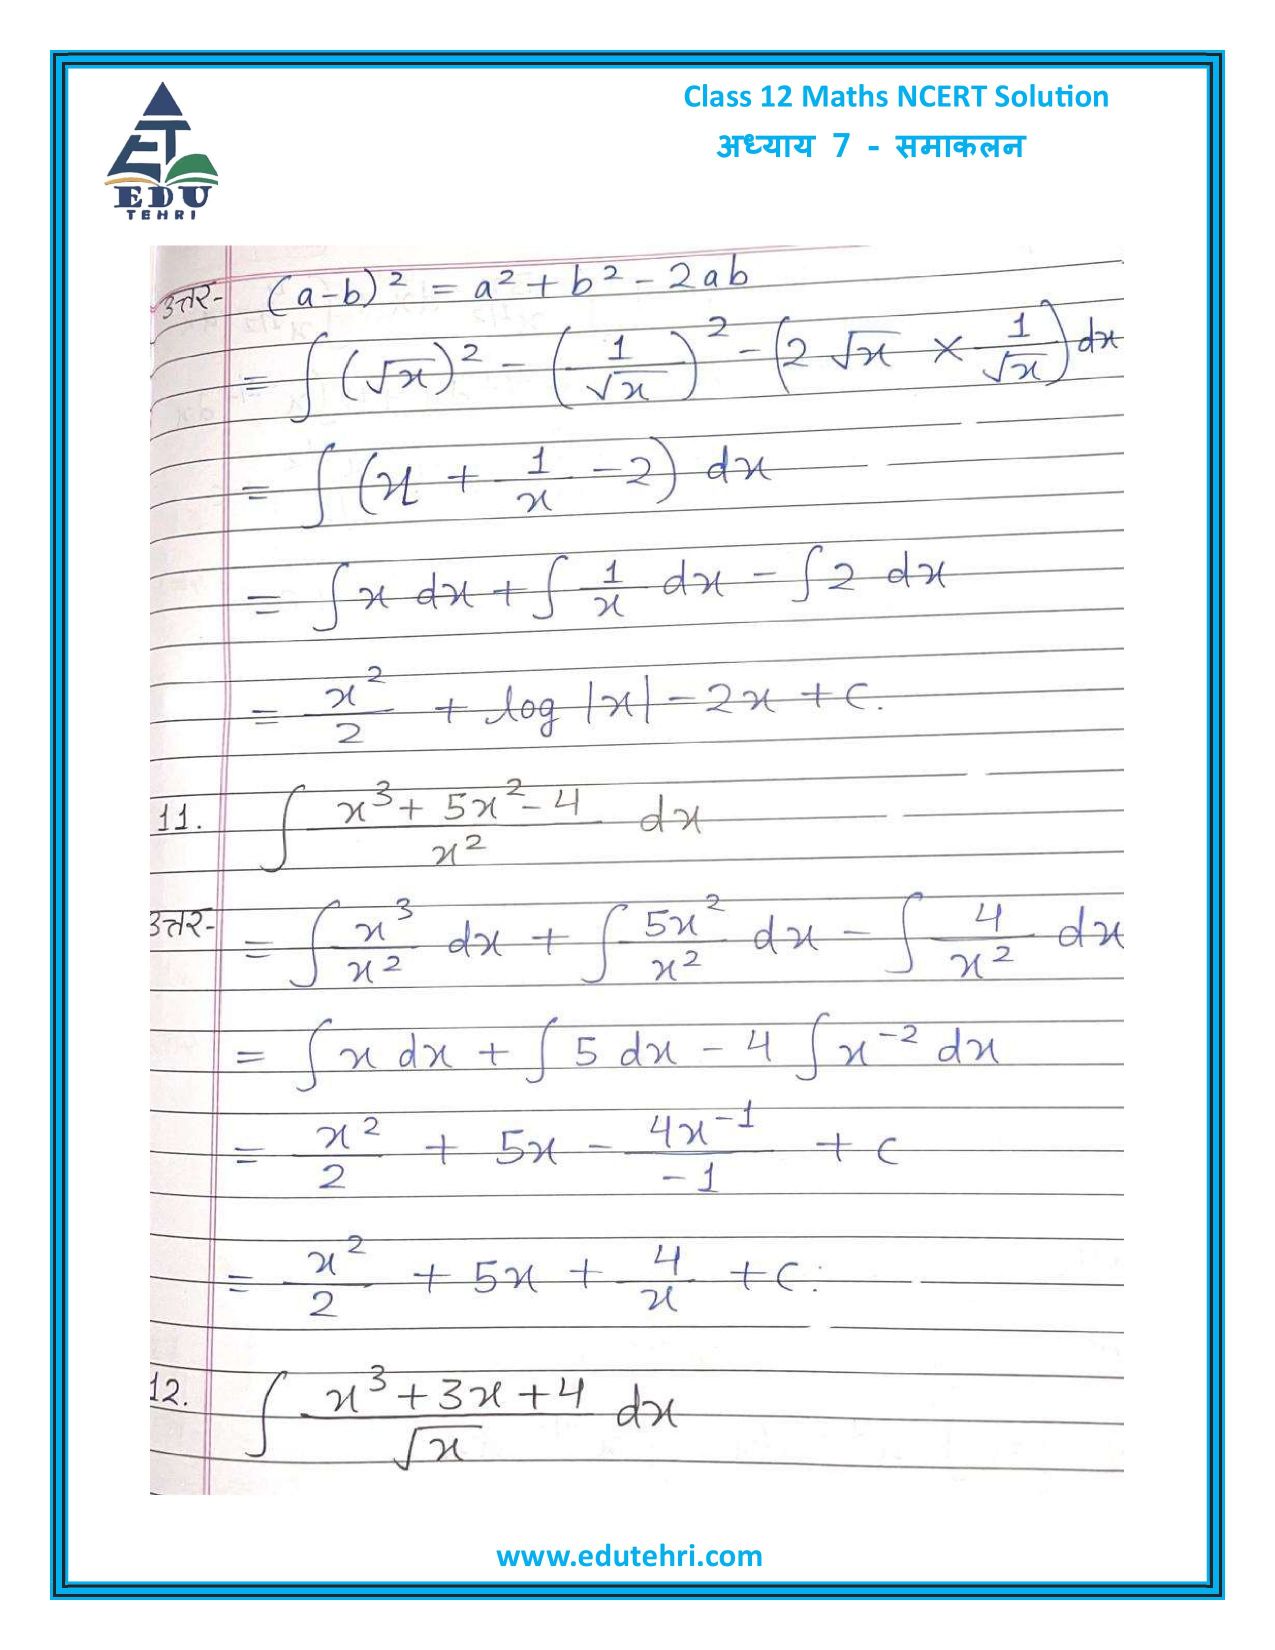 Class 12 Maths NCERT Solution
अध्याय 7 - समाकलन
EDU
TEHRI
उत्तर- (a-b)² = a² + b² - 2ab
= ∫ (√x)² - (1/√x)² - (2 √x × 1/√x) dx
= ∫ (x + 1/x - 2) dx
= ∫ x dx + ∫ 1/x dx - ∫ 2 dx
= x²/2 + log |x| - 2x + c.
11. ∫ x³ + 5x² - 4 / x² dx
उत्तर- = ∫ x³/x² dx + ∫ 5x²/x² dx - ∫ 4/x² dx
= ∫ x dx + ∫ 5 dx - 4 ∫ x⁻² dx
= x²/2 + 5x - 4x⁻¹/-1 + c
= x²/2 + 5x + 4/x + c.
12. ∫ x³ + 3x + 4 / √x dx
www.edutehri.com